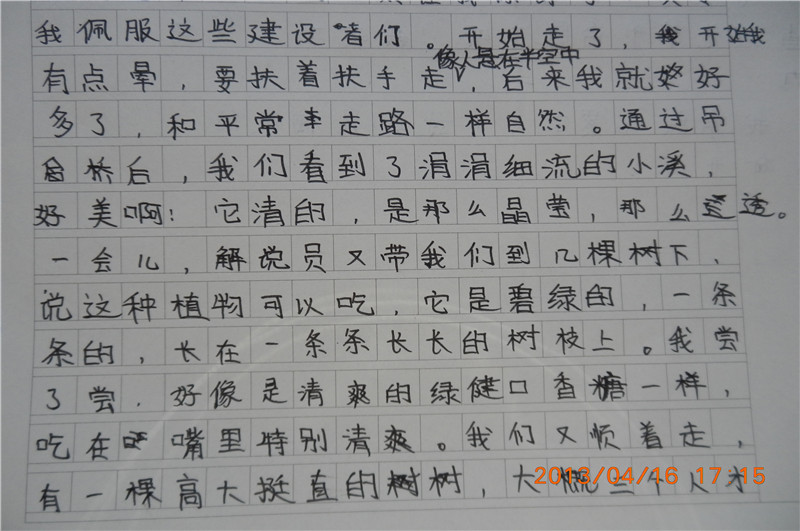 我佩服这些建设者们。开始走了，我开始我
像人悬在半空中
有点晕，要扶着扶手走，后来我就好
多了，和平常走路一样自然。通过吊
桥后，我们看到了涓涓细流的小溪，
好美啊！它清的，是那么晶莹，那么透。
一会儿，解说员又带我们到几棵树下，
说这种植物可以吃，它是碧绿的，一条
条的，长在一条条长长的树枝上。我尝
了尝．好像是清爽的绿健口香糖一样，
吃在嘴里特别清爽。我们又顺着走，
有一棵高大挺直的树，大概三个人才
2013/04/16 17:15